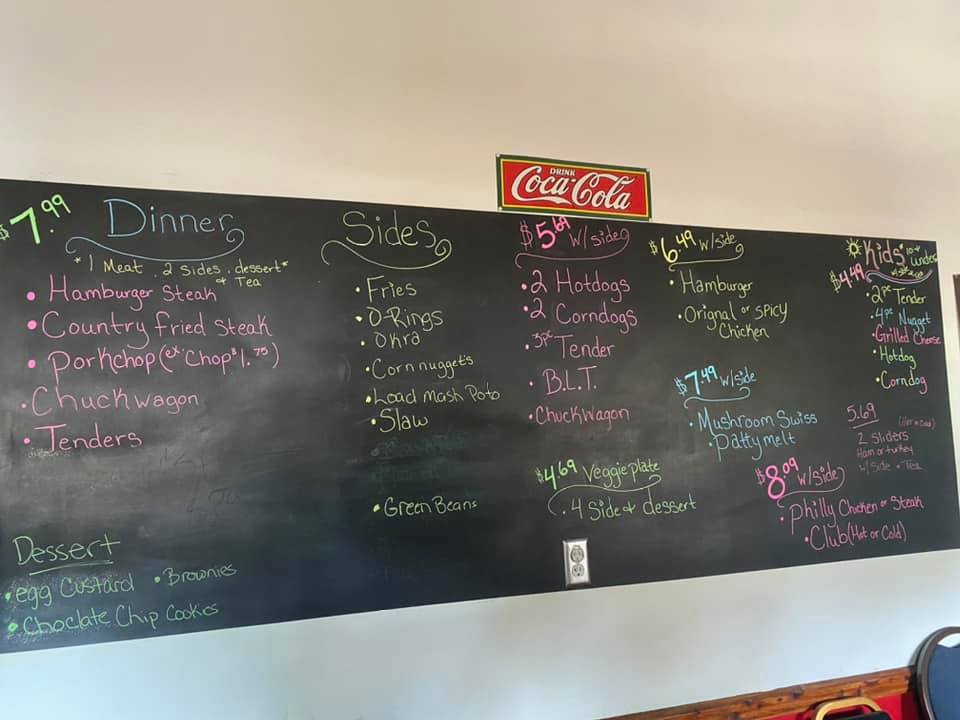 DRINK
Coca-Cola
$7.99 Dinner
*1 Meat . 2 Sides . dessert*
& Tea
• Hamburger Steak
• Country fried steak
• Porkchop (ex Chop $1.75)
• Chuckwagon
• Tenders
Dessert
• egg Custard • Brownies
• Choclate Chip Cookies
Sides
• Fries
• O-Rings
• Okra
• Corn nuggets
• Load mash Poto
• Slaw
• Green Beans
$5.69 w/side
• 2 Hotdogs
• 2 Corndogs
• 3pc Tender
• B.L.T.
• Chuckwagon
$4.69 Veggie plate
• 4 Side & dessert
$6.49 w/side
• Hamburger
• Orignal or spicy
Chicken
$7.49 w/side
• Mushroom Swiss
• Patty melt
$8.09 w/side
• Philly Chicken or Steak
• Club (Hot or Cold)
Kids
under
$4.49
• 2pc Tender
• 4pc Nugget
• Grilled Cheese
• Hotdog
• Corndog
5.69 (Hot or Cold)
2 Sliders
Ham or turkey
w/ Side + Tea